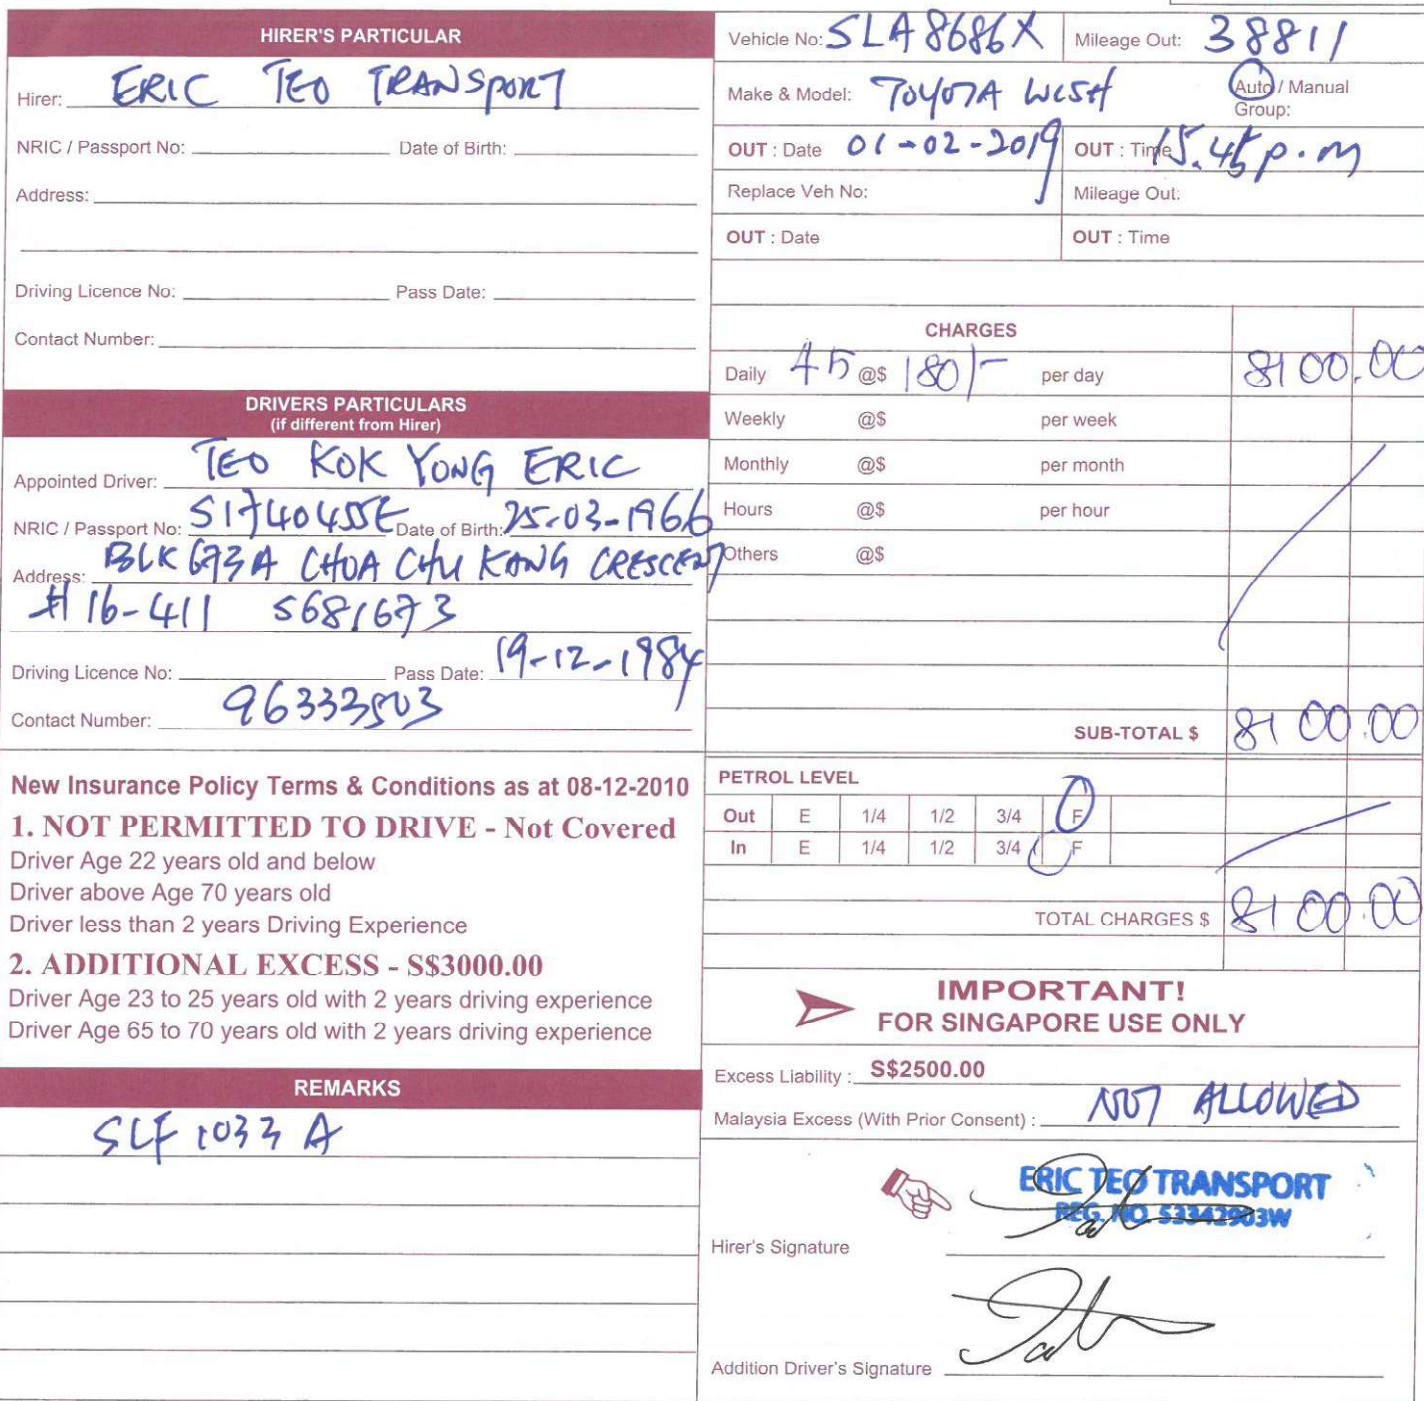 HIRER'S PARTICULAR
Hirer: ERIC TEO TRANSPORT
NRIC / Passport No: Date of Birth:
Address:
Driving Licence No: Pass Date:
Contact Number:
DRIVERS PARTICULARS
(if different from Hirer)
Appointed Driver: TEO KOK YONG ERIC
NRIC / Passport No: S1740455E Date of Birth: 25-03-1966
Address: BLK 673A CHOA CHU KANG CRESCENT
#16-411 S681673
Driving Licence No: Pass Date: 19-12-1984
Contact Number: 96333503
New Insurance Policy Terms & Conditions as at 08-12-2010
1. NOT PERMITTED TO DRIVE - Not Covered
Driver Age 22 years old and below
Driver above Age 70 years old
Driver less than 2 years Driving Experience
2. ADDITIONAL EXCESS - S$3000.00
Driver Age 23 to 25 years old with 2 years driving experience
Driver Age 65 to 70 years old with 2 years driving experience
REMARKS
SLF 1033 A
Vehicle No: SLA8686X Mileage Out: 38811
Make & Model: TOYOTA WISH Auto / Manual
Group:
OUT : Date 01-02-2019 OUT : Time 15.45 p.m
Replace Veh No: Mileage Out:
OUT : Date OUT : Time
CHARGES
Daily 45 @$ 180/- per day 8100.00
Weekly @$ per week
Monthly @$ per month
Hours @$ per hour
Others @$
SUB-TOTAL $ 8100.00
PETROL LEVEL
Out E 1/4 1/2 3/4 F
In E 1/4 1/2 3/4 F
TOTAL CHARGES $ 8100.00
IMPORTANT!
FOR SINGAPORE USE ONLY
Excess Liability : S$2500.00
Malaysia Excess (With Prior Consent) : NOT ALLOWED
ERIC TEO TRANSPORT
REG. NO. 53342903W
Hirer's Signature
Addition Driver's Signature